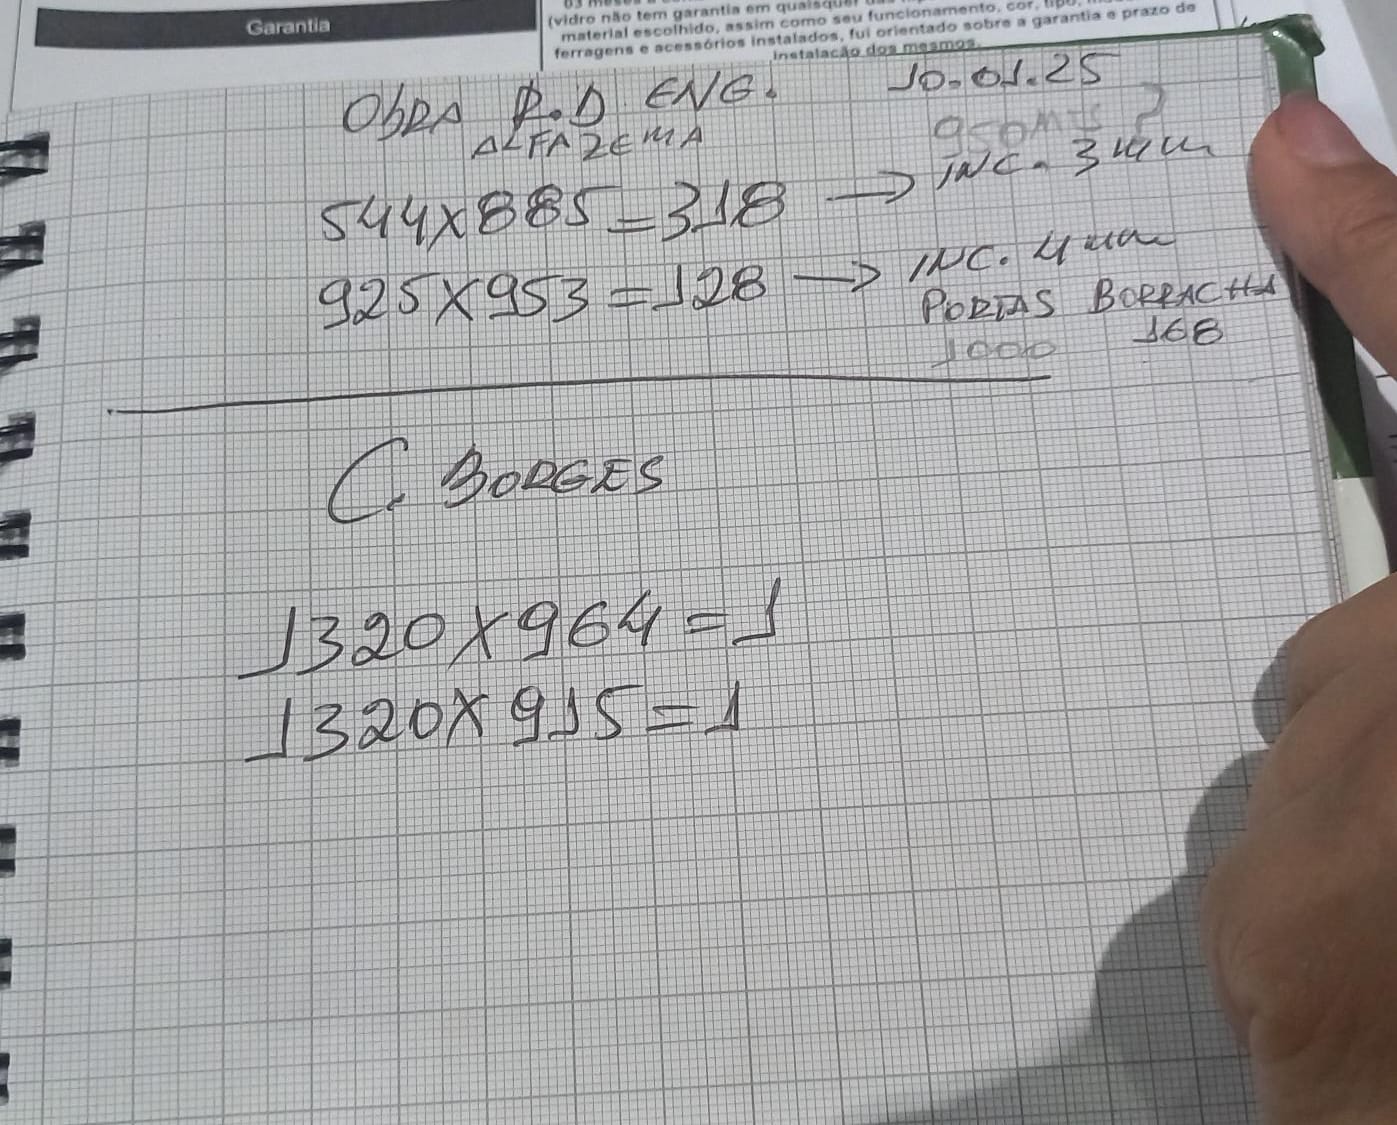 Garantia
(vidro não tem garantia em quaisquer
material escolhido, assim como seu funcionamento, cor, tipo,
ferragens e acessórios instalados, fui orientado sobre a garantia e prazo de
instalação dos mesmos.
ObRA R.D ENG. 10.01.25
ALFAZEMA
544x885=318 → INC. 3mm
925x953=128 → INC. 4mm
PORTAS BORRACHA
1000 168
C. BORGES
1320x964=1
1320x915=1